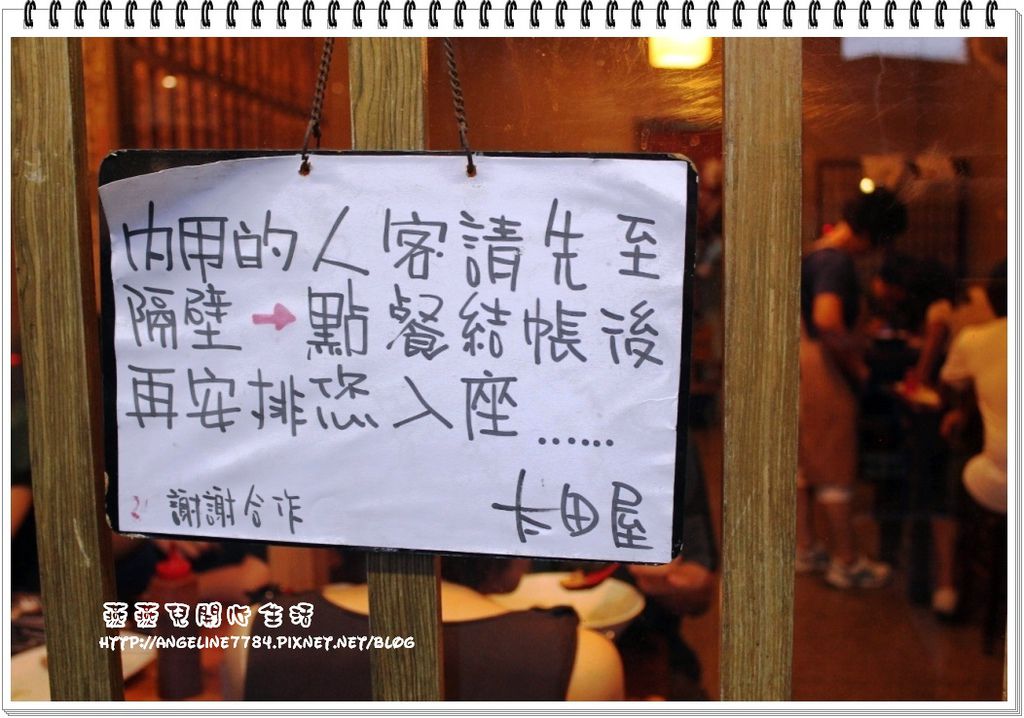 內用的人客請先至
隔壁→點餐結帳後
再安排您入座......
謝謝合作 卡田屋
燕燕兒開心生活
HTTP://ANGELINE7784.PIXNET.NET/BLOG